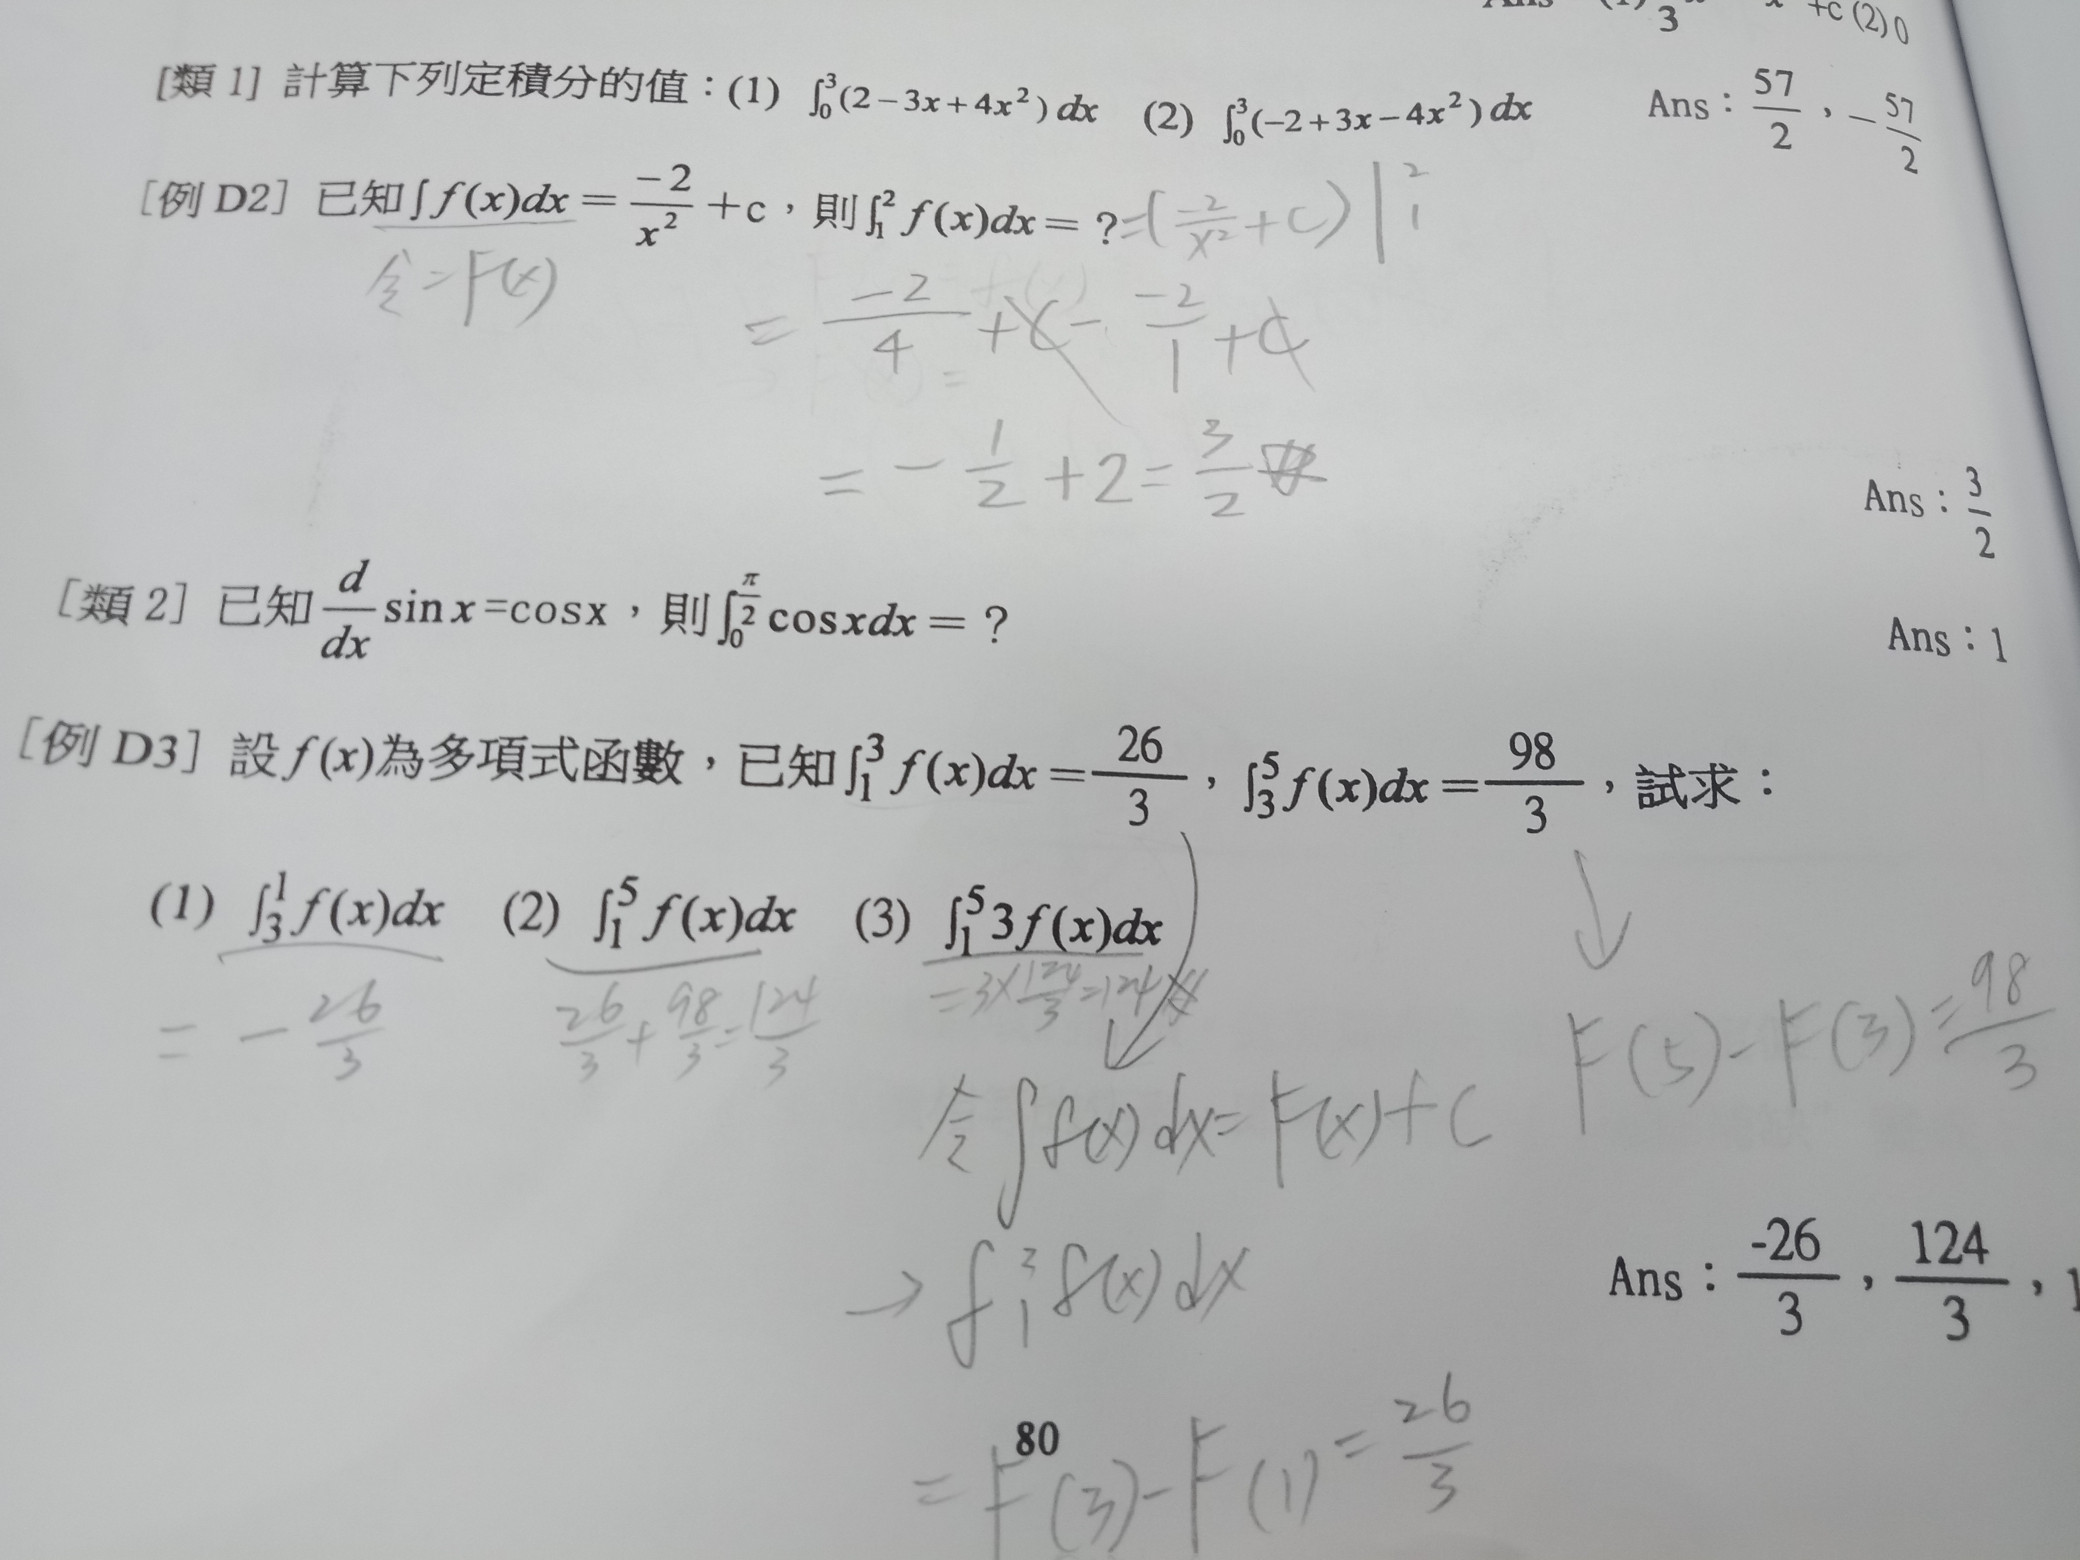 3 +c (2) 0
[類 1] 計算下列定積分的值：(1) ∫₀³(2－3x＋4x²) dx (2) ∫₀³(－2＋3x－4x²) dx Ans：57/2，－57/2
[例 D2] 已知∫f(x)dx＝－2/x²＋c，則∫₁²f(x)dx＝？=(－2/x²+C)|₁²
令=F(x)
= －2/4 +C－ －2/1 +C
= －1/2 +2= 3/2
Ans：3/2
[類 2] 已知 d/dx sin x=cosx，則∫₀^(π/2) cosxdx＝？ Ans：1
[例 D3] 設 f(x)為多項式函數，已知∫₁³f(x)dx＝26/3，∫₃⁵f(x)dx＝98/3，試求：
(1) ∫₃¹f(x)dx (2) ∫₁⁵f(x)dx (3) ∫₁⁵3f(x)dx
= －26/3 26/3+98/3=124/3 =3×124/3=124
F(5)－F(3)=98/3
令∫f(x)dx=F(x)+C
→∫₁³f(x)dx
Ans：-26/3，124/3，
80
=F(3)－F(1)=26/3